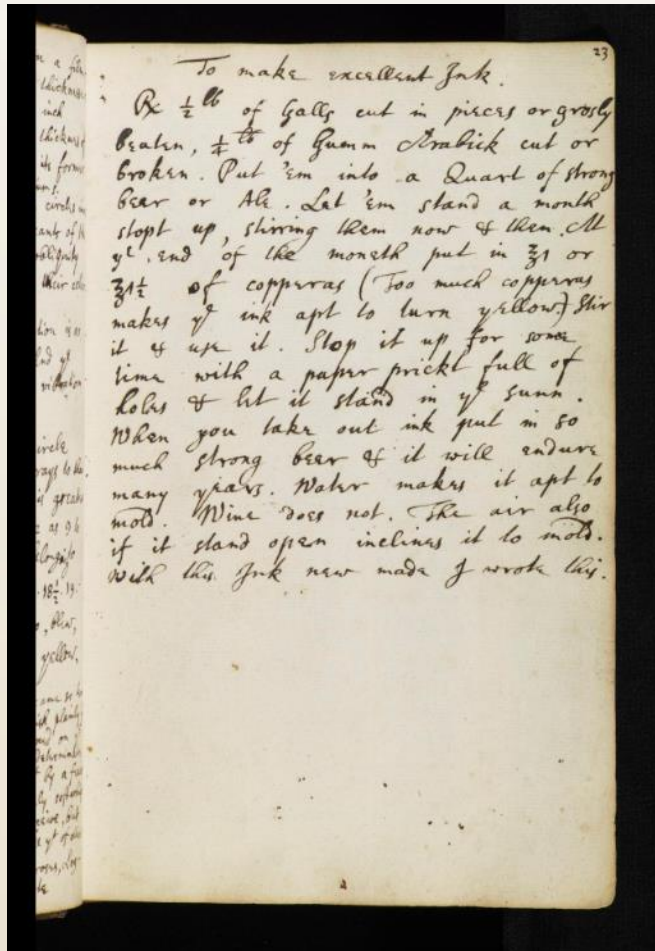 23
To make excellent Ink.
℞ ½ lb of Galls cut in pieces or grosly
beaten, ¼ lb of Gumm Arabick cut or
broken. Put 'em into a Quart of strong
bear or Ale. Let 'em stand a month
stopt up, stirring them now & then. At
yᵉ end of the moneth put in ℥1 or
℥1½ of copperas (Too much copperas
makes yᵉ ink apt to turn yellow.) Stir
it & use it. Stop it up for some
time with a paper prickt full of
holes & let it stand in yᵉ sunn.
When you take out ink put in so
much strong bear & it will endure
many years. Water makes it apt to
mold. Wine does not. The air also
if it stand open inclines it to mold.
With this Ink new made I wrote this.
thickness
inch
thickness
its form
circles
obliquity
their
yᵗ
circle
rays to the
is great
as 9
18½. 19
blew,
yellow,
plainly
on
by a